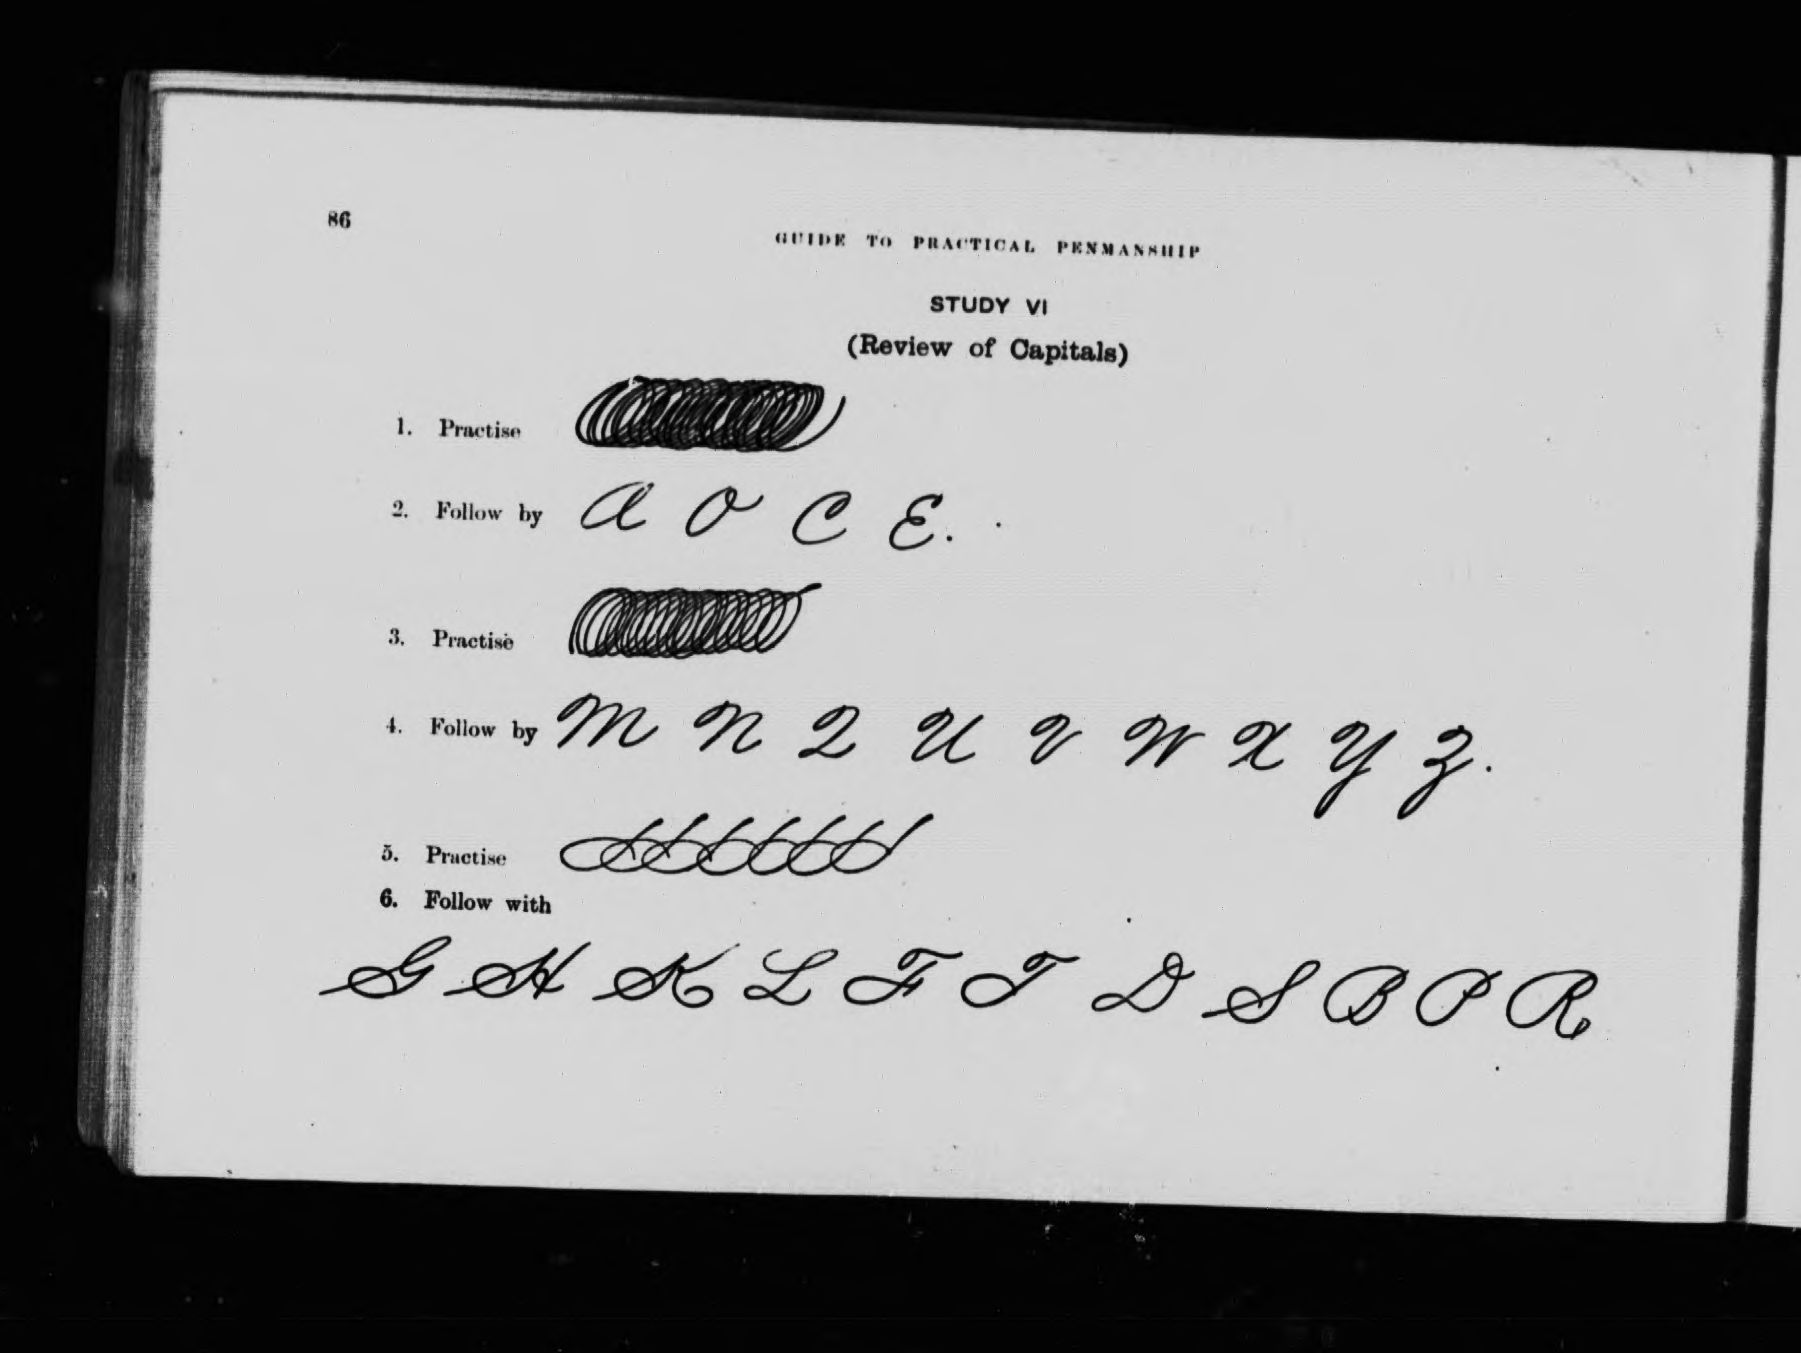 86
GUIDE TO PRACTICAL PENMANSHIP
STUDY VI
(Review of Capitals)
1. Practise
2. Follow by A O C E.
3. Practise
4. Follow by M N Q U V W X Y Z.
5. Practise
6. Follow with
G H K L F T D S B P R